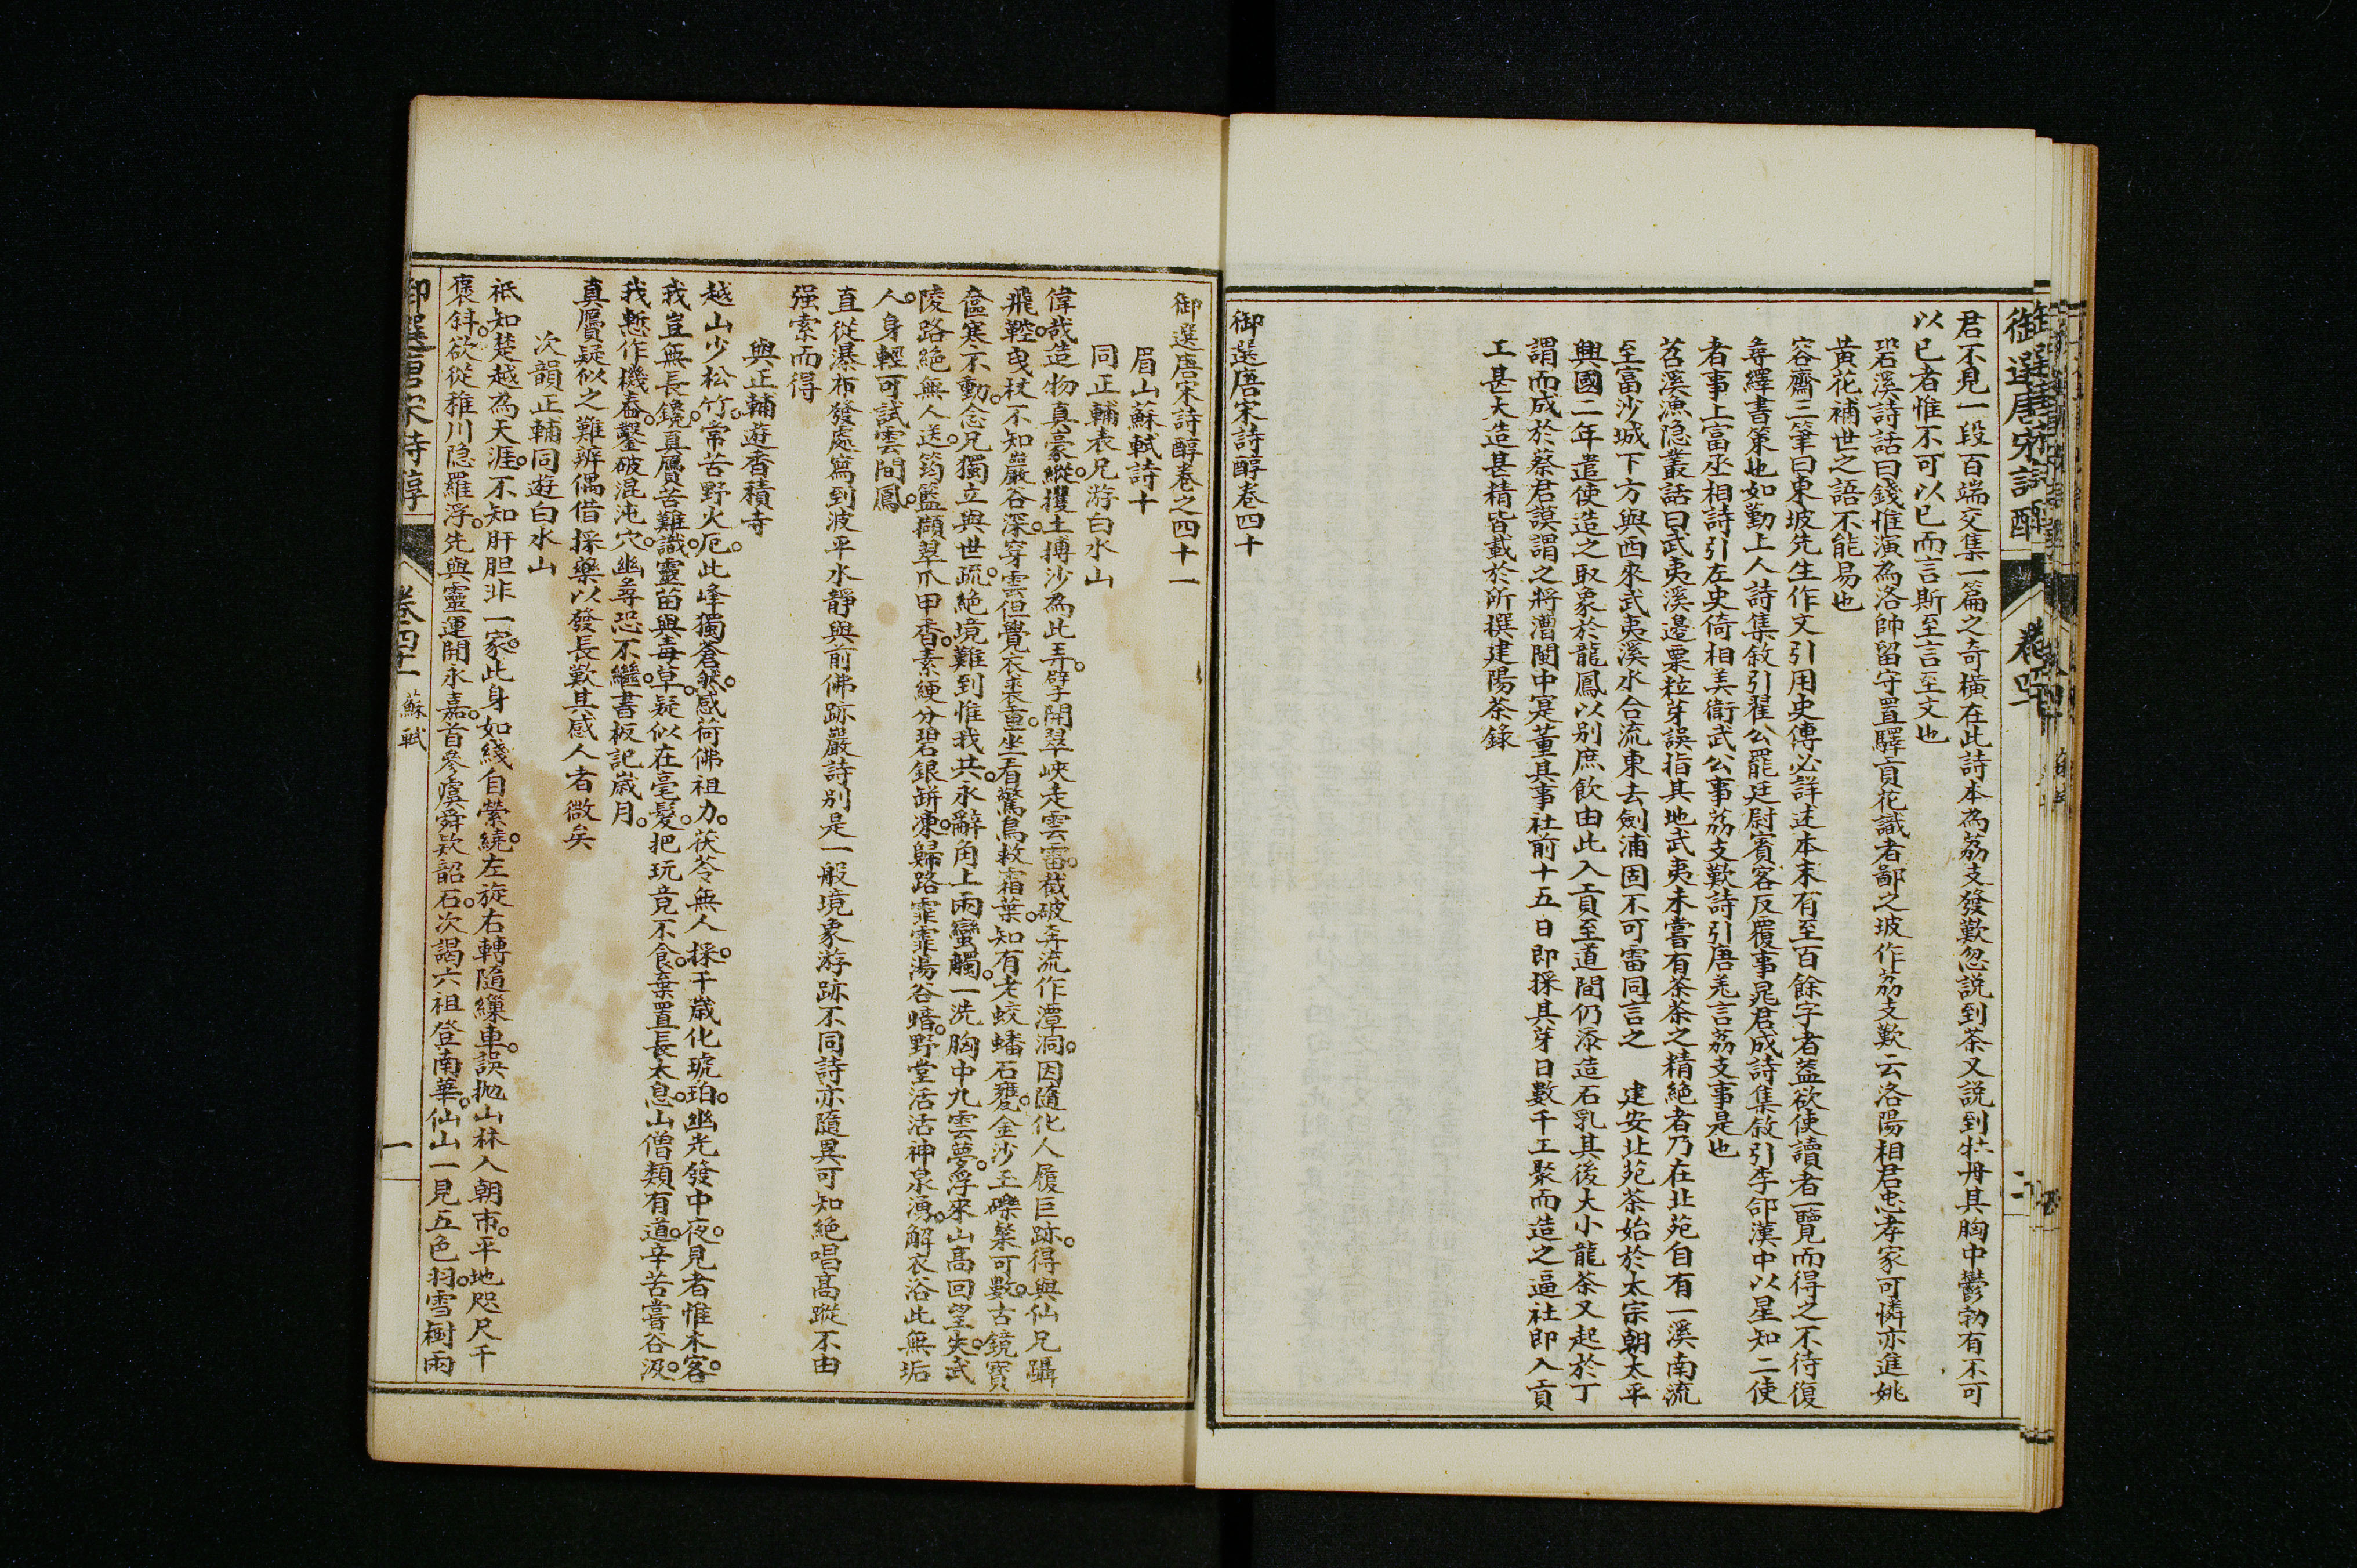 御選唐宋詩醇
卷四十
君不見一段百端交集一篇之奇橫在此詩本為荔支發歎忽説到茶又説到牡丹其胸中鬱勃有不可
以已者惟不可以已而言斯至言至文也
䂬溪詩話曰錢惟演為洛帥留守置驛貢花識者鄙之坡作荔支歎云洛陽相君忠孝家可憐亦進姚
黄花補世之語不能易也
容齋三筆曰東坡先生作文引用史傳必詳述本末有至百餘字者蓋欲使讀者一覽而得之不待復
尋繹書策也如勤上人詩集敘引翟公罷廷尉賓客反覆事晁君成詩集敘引李郃漢中以星知二使
者事上富丞相詩引左史倚相美衛武公事荔支歎詩引唐羌言荔支事是也
苕溪漁隐叢話曰武夷溪邊粟粒芽誤指其地武夷未嘗有茶茶之精絶者乃在北苑自有一溪南流
至富沙城下方與西來武夷溪水合流東去劍浦固不可雷同言之　建安北苑茶始於太宗朝太平
興國二年遣使造之取象於龍鳳以别庶飲由此入貢至道間仍添造石乳其後大小龍茶又起於丁
謂而成於蔡君謨謂之將漕閩中寔董其事社前十五日即採其芽日數千工聚而造之逼社即入貢
工甚大造甚精皆載於所撰建陽茶錄
御選唐宋詩醇卷四十
御選唐宋詩醇卷之四十一
眉山蘇軾詩十
同正輔表兄游白水山
偉哉造物真豪縱。攫土摶沙為此弄。擘開翠峽走雲雷。截破奔流作潭洞。因隨化人履巨跡。得與仙兄躡
飛鞚。曳杖不知巖谷深。穿雲但覺衣裘重。坐看驚鳥救霜葉。知有老蛟蟠石甕。金沙玉礫粲可數。古鏡寳
奩寒不動。念兄獨立與世疏。絶境難到惟我共。永辭角上兩蠻觸。一洗胸中九雲夢。浮來山高回望失。武
陵路絶無人送。筠籃擷翠爪甲香。素綆分碧銀缾凍。歸路霏霏湯谷暗。野堂活活神泉湧。解衣浴此無垢
人。身輕可試雲間鳳。
直從瀑布發處寫到波平水靜與前佛跡巖詩别是一般境象游跡不同詩亦隨異可知絶唱高蹤不由
强索而得
與正輔遊香積寺
越山少松竹。常苦野火厄。此峰獨蒼然。感荷佛祖力。茯苓無人採。千歲化琥珀。幽光發中夜。見者惟木客。
我豈無長鑱。真贋苦難識。靈苗與毒草。疑似在毫髮。把玩竟不食。棄置長太息。山僧類有道。辛苦嘗谷汲。
我慙作機舂。鑿破混沌穴。幽尋恐不繼。書板記歲月。
真贋疑似之難辨偶借採藥以發長歎其感人者微矣
次韻正輔同遊白水山
祗知楚越為天涯。不知肝胆非一家。此身如綫自縈繞。左旋右轉隨繅車。誤抛山林入朝市。平地咫尺千
褒斜。欲從稚川隐羅浮。先與靈運開永嘉。首參虞舜欵韶石。次謁六祖登南華。仙山一見五色羽。雪樹兩
御選唐宋詩醇
卷四十一
蘇軾
一